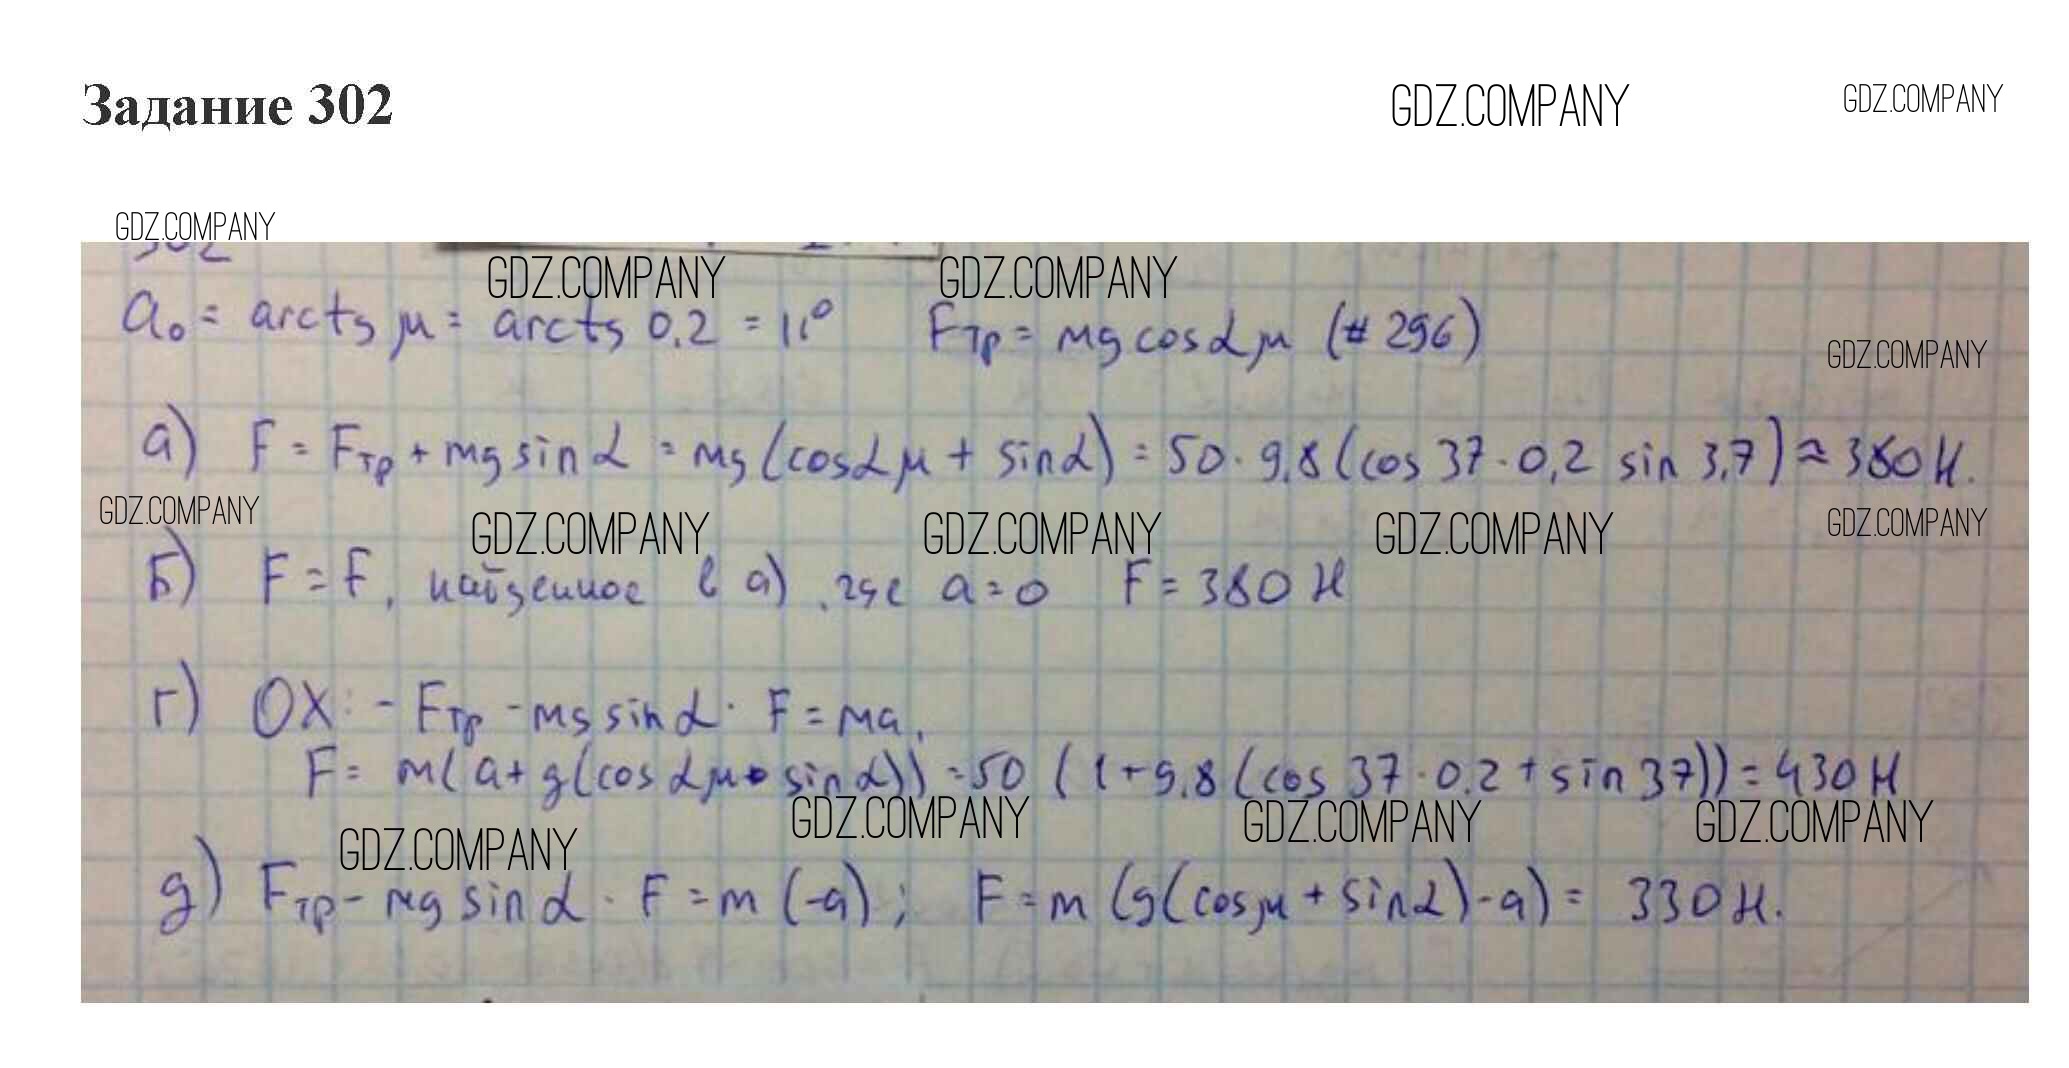 Задание 302
GDZ.COMPANY
GDZ.COMPANY
GDZ.COMPANY
302
GDZ.COMPANY
GDZ.COMPANY
a₀ = arctg μ = arctg 0,2 = 11° Fтр = mg cosα μ (# 296)
GDZ.COMPANY
а) F = Fтр + mg sin α = mg (cosα μ + sinα) = 50 · 9,8 (cos 37 · 0,2 sin 3,7) ≈ 380 H.
GDZ.COMPANY
GDZ.COMPANY
GDZ.COMPANY
GDZ.COMPANY
GDZ.COMPANY
Б) F = F, найденное в а), где a = 0 F = 380 H
г) OX: - Fтр - mg sin α · F = ma,
F = m(a + g(cosα μ + sinα)) = 50 (1 + 9,8 (cos 37 · 0,2 + sin 37)) = 430 H
GDZ.COMPANY
GDZ.COMPANY
GDZ.COMPANY
GDZ.COMPANY
д) Fтр - mg sin α · F = m (-a); F = m (g(cos μ + sinα) - a) = 330 H.